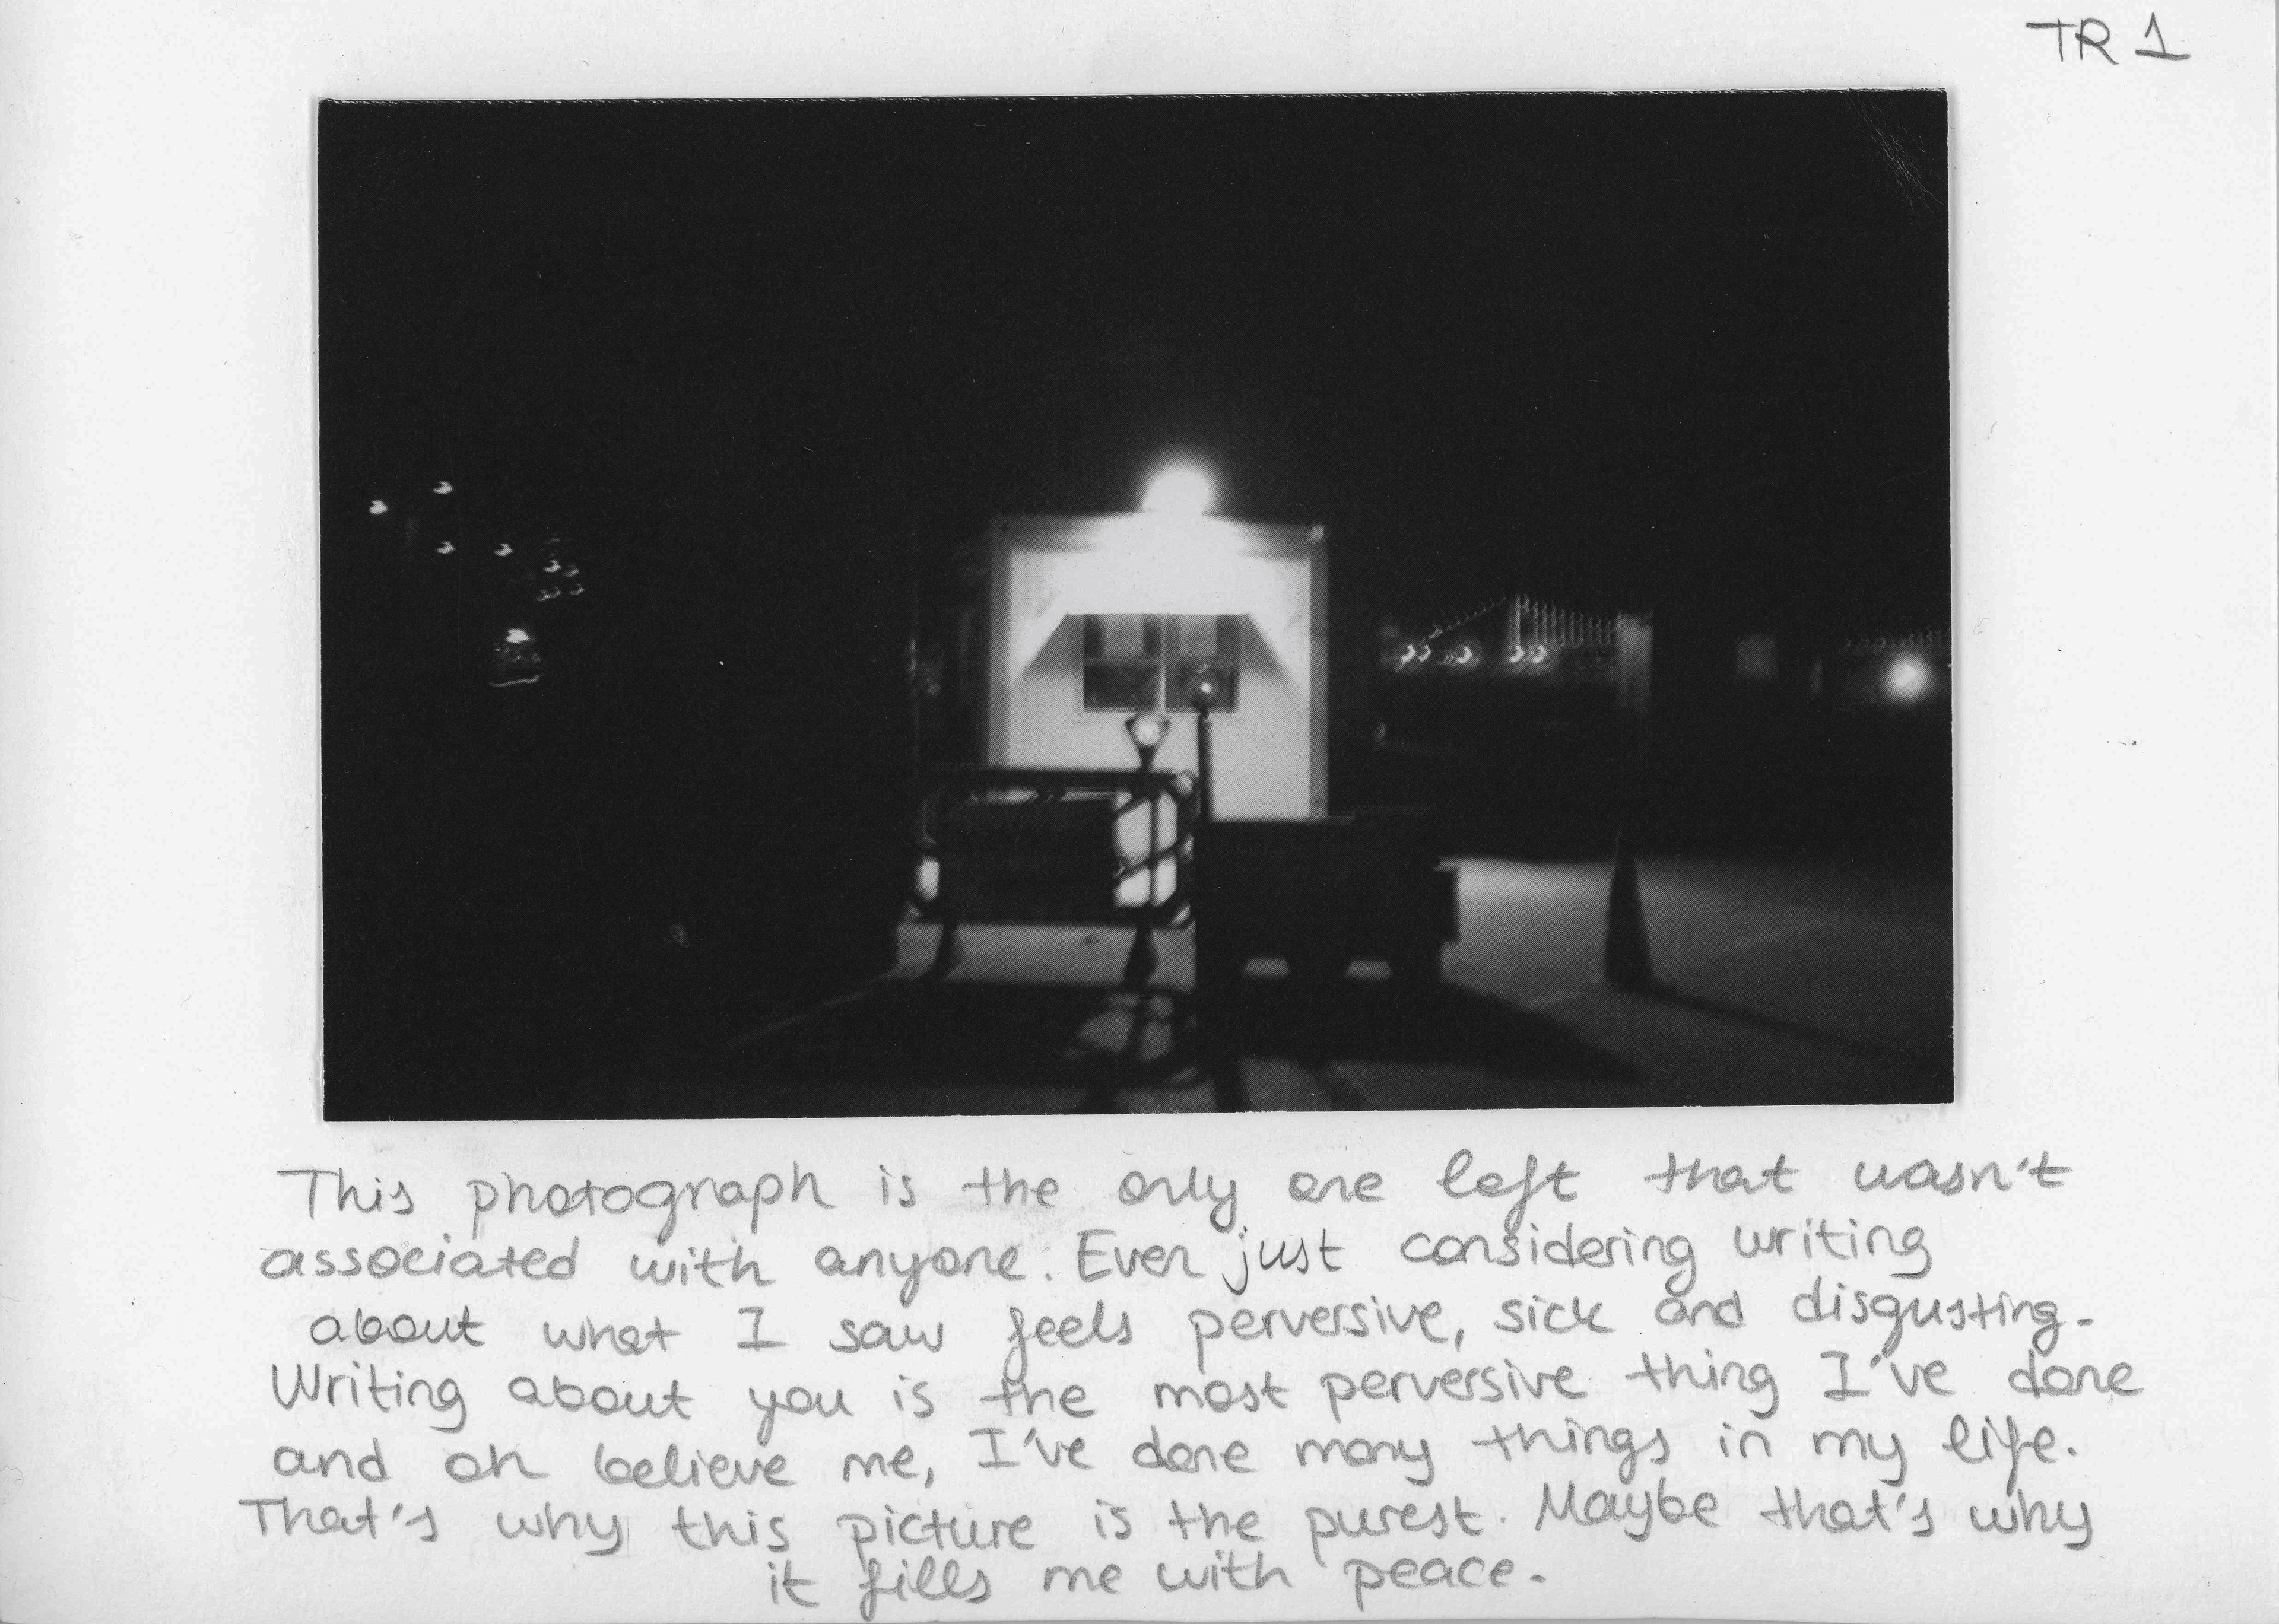 TR 1
This photograph is the only one left that wasn't
associated with anyone. Even just considering writing
about what I saw feels perversive, sick and disgusting.
Writing about you is the most perversive thing I've done
and oh believe me, I've done many things in my life.
That's why this picture is the purest. Maybe that's why
it fills me with peace.